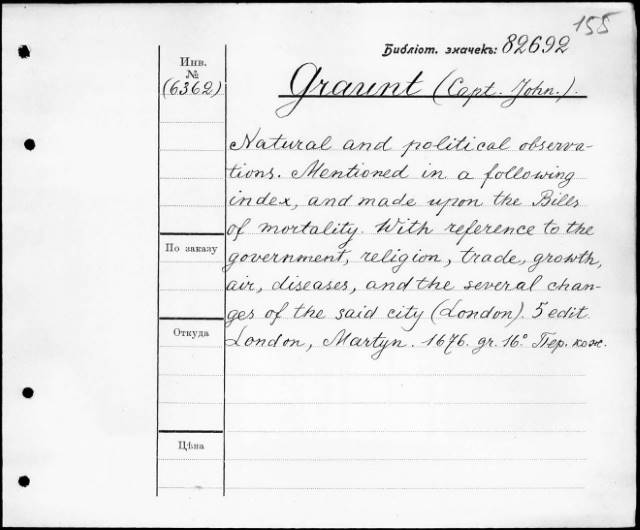 155
Библіот. значекъ: 82692
Инв.
№
(6362)
Graunt (Capt. John.).
Natural and political observa-
tions. Mentioned in a following
index, and made upon the Bills
of mortality. With reference to the
По заказу
government, religion, trade, growth,
air, diseases, and the several chan-
ges of the said city (London). 5 edit.
Откуда
London, Martyn. 1676. gr. 16° Пер. кож.
Цѣна